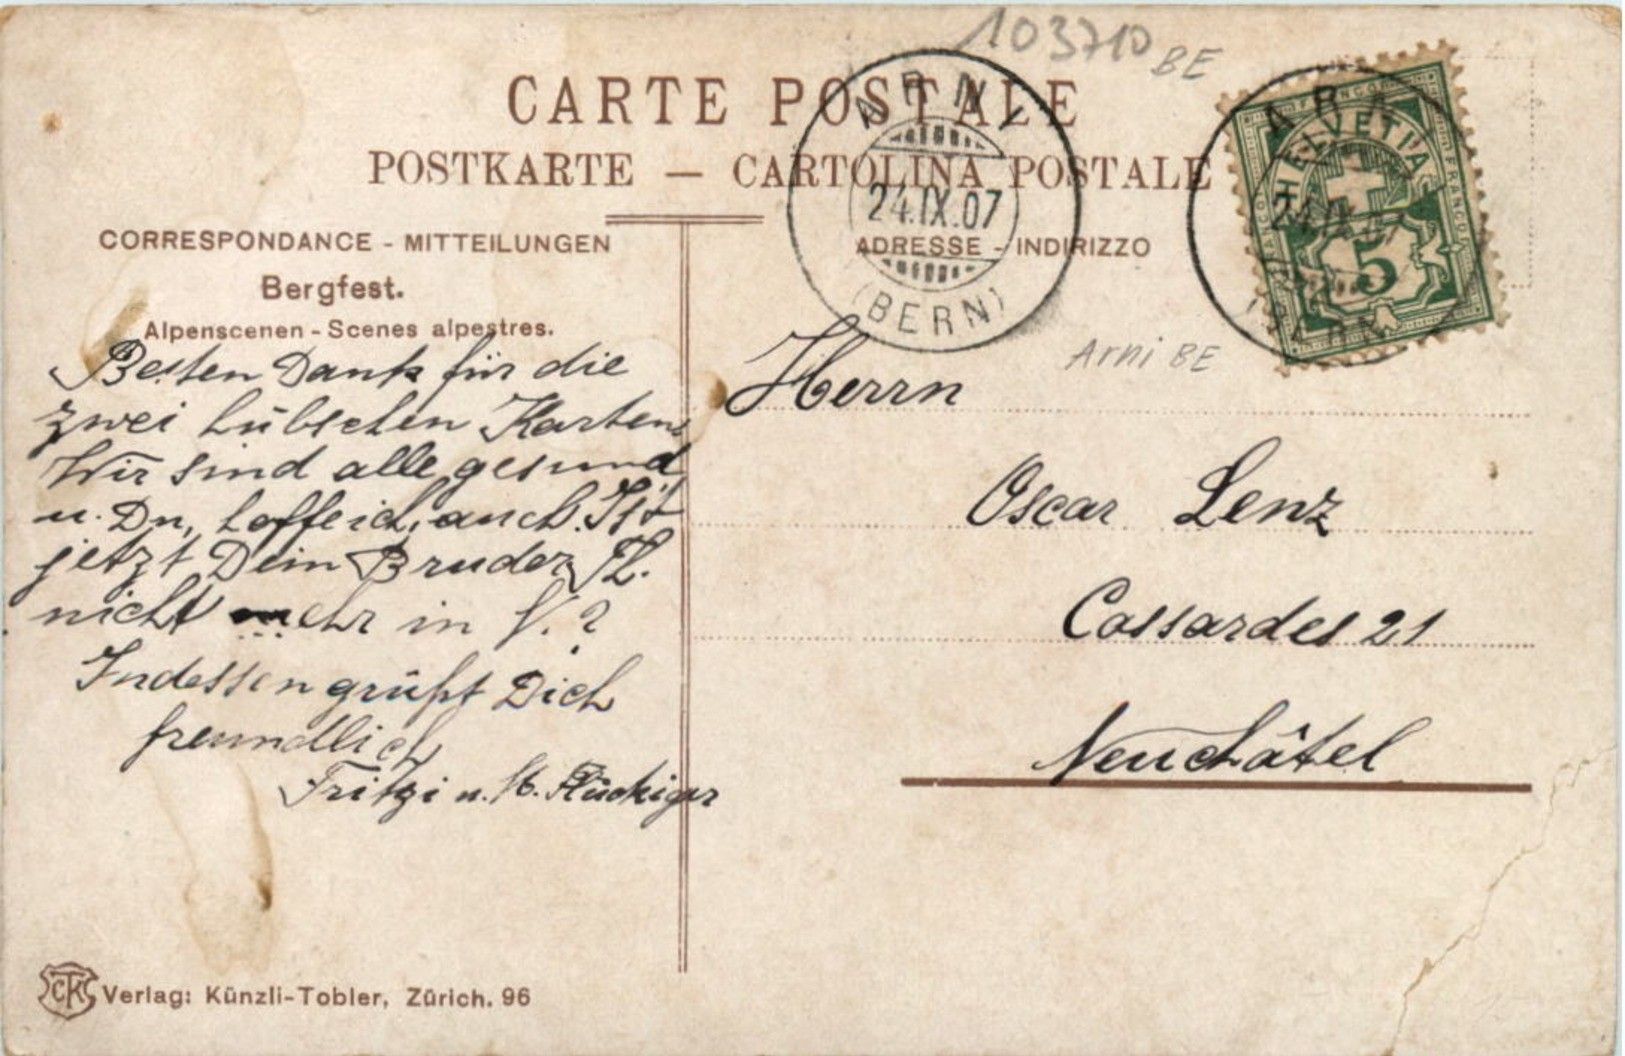 103710 BE
CARTE POSTALE
POSTKARTE — CARTOLINA POSTALE
ARNI
24.IX.07
(BERN)
HELVETIA
FRANCO
5
24.IX.07
CORRESPONDANCE - MITTEILUNGEN
Bergfest.
Alpenscenen - Scenes alpestres.
Besten Dank für die
zwei hübschen Karten.
Wir sind alle gesund
u. Du, hoffe ich, auch. Ist
jetzt Dein Bruder
nicht mehr in V.?
Indessen grüßt Dich
freundlich
Fritzi u. Flückiger
ADRESSE - INDIRIZZO
Arni BE
Herrn
Oscar Lenz
Cassardes 21
Neuchâtel
CTK Verlag: Künzli-Tobler, Zürich. 96